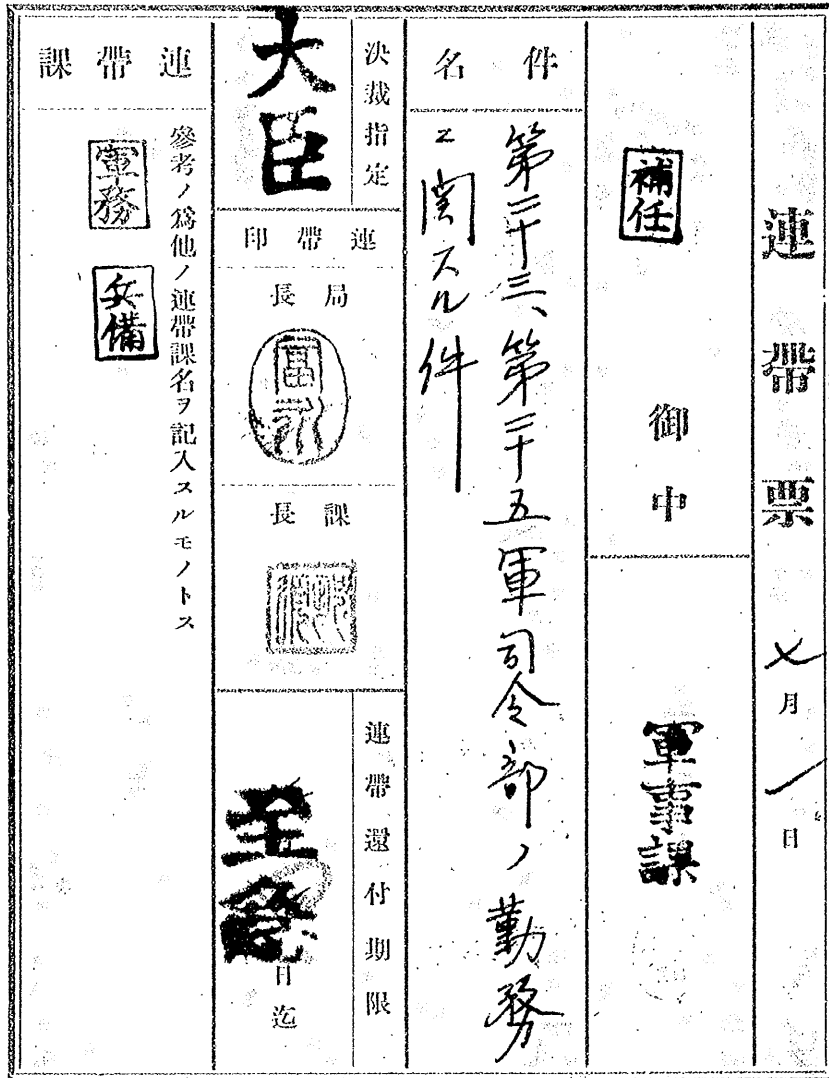 連帶票
七月一日
補任
御中
軍事課
件名
第二十三、第二十五軍司令部ノ勤務
ニ関スル件
決裁指定
大臣
連帶印
局長
富永
課長
連帶還付期限
至急
日迄
連帶課
參考ノ爲他ノ連帶課名ヲ記入スルモノトス
軍務
兵備